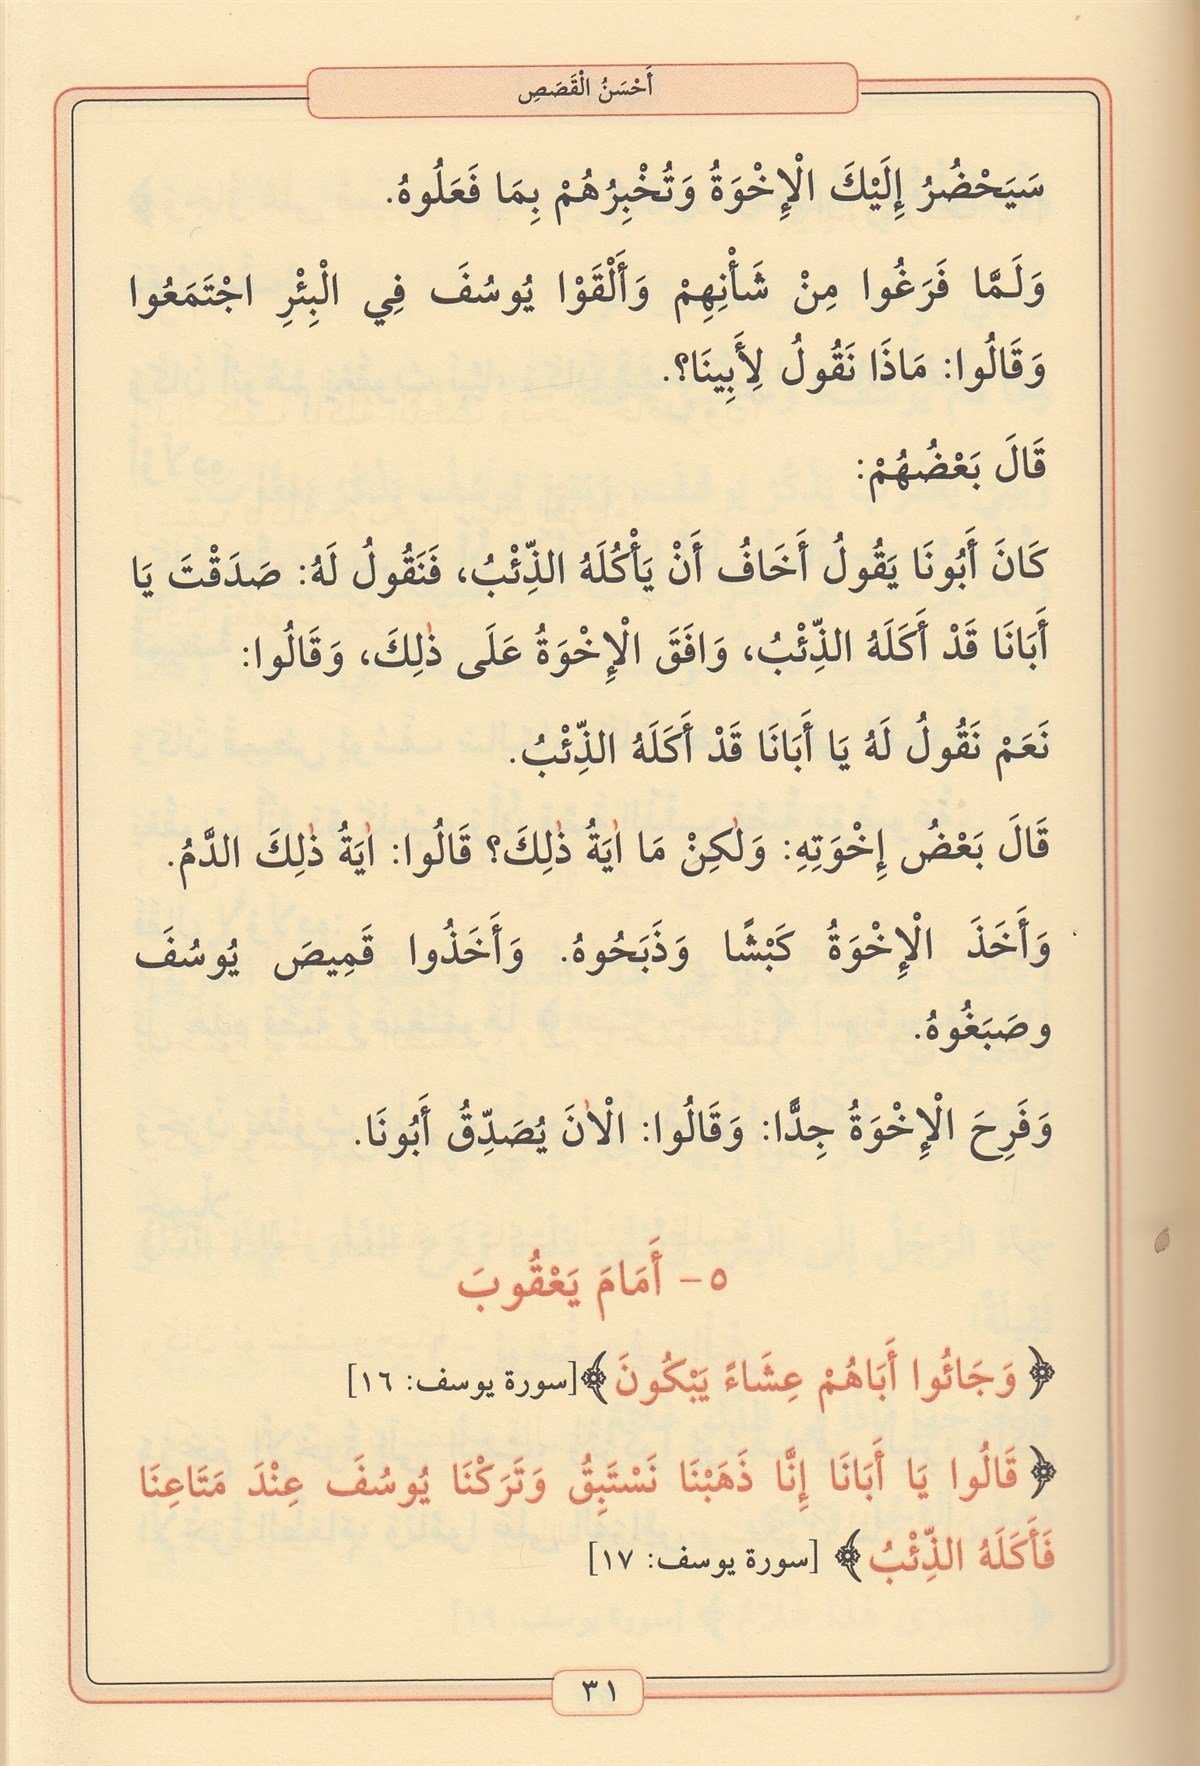 أَحْسَنُ الْقَصَصِ
سَيَحْضُرُ إِلَيْكَ الْإِخْوَةُ وَتُخْبِرُهُمْ بِمَا فَعَلُوهُ.
وَلَمَّا فَرَغُوا مِنْ شَأْنِهِمْ وَأَلْقَوْا يُوسُفَ فِي الْبِئْرِ اجْتَمَعُوا
وَقَالُوا: مَاذَا نَقُولُ لِأَبِينَا؟.
قَالَ بَعْضُهُمْ:
كَانَ أَبُونَا يَقُولُ أَخَافُ أَنْ يَأْكُلَهُ الذِّئْبُ، فَنَقُولُ لَهُ: صَدَقْتَ يَا
أَبَانَا قَدْ أَكَلَهُ الذِّئْبُ، وَافَقَ الْإِخْوَةُ عَلَى ذٰلِكَ، وَقَالُوا:
نَعَمْ نَقُولُ لَهُ يَا أَبَانَا قَدْ أَكَلَهُ الذِّئْبُ.
قَالَ بَعْضُ إِخْوَتِهِ: وَلٰكِنْ مَا اٰيَةُ ذٰلِكَ؟ قَالُوا: اٰيَةُ ذٰلِكَ الدَّمُ.
وَأَخَذَ الْإِخْوَةُ كَبْشًا وَذَبَحُوهُ. وَأَخَذُوا قَمِيصَ يُوسُفَ
وصَبَغُوهُ.
وَفَرِحَ الْإِخْوَةُ جِدًّا: وَقَالُوا: الْاٰنَ يُصَدِّقُ أَبُونَا.
٥- أَمَامَ يَعْقُوبَ
﴿وَجَائُوا أَبَاهُمْ عِشَاءً يَبْكُونَ﴾[سورة يوسف: ١٦]
﴿قَالُوا يَا أَبَانَا إِنَّا ذَهَبْنَا نَسْتَبِقُ وَتَرَكْنَا يُوسُفَ عِنْدَ مَتَاعِنَا
فَأَكَلَهُ الذِّئْبُ﴾ [سورة يوسف: ١٧]
٣١